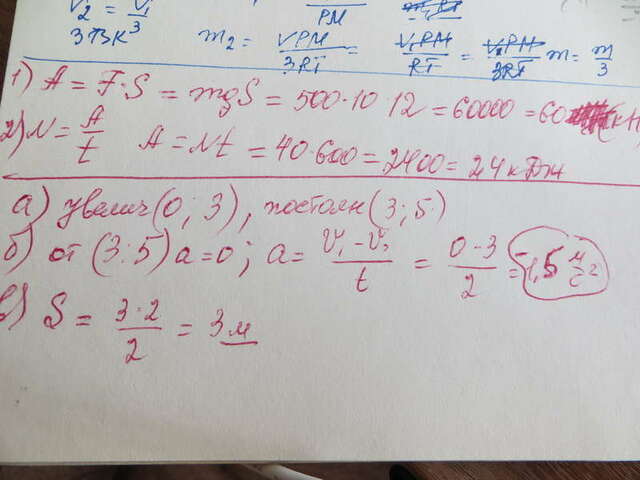 V₂ = V₁/3
3T3K
PM
m₂ = VPM/3RT = V₁PM/RT = VPM/3RT m = m/3
1) A = F·S = mgS = 500·10·12 = 60000 = 60 (кН
2) N = A/t A = Nt = 40·600 = 2400 = 24 кДж
а) увелич (0; 3), постоян (3; 5)
б) от (3:5) a = 0; a = V₁ - V₂/t = 0 - 3/2 = -1,5 м/с²
в) S = 3·2/2 = 3 м